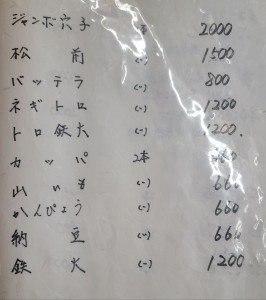 ジャンボ穴子 2000
松前 (〃) 1500
バッテラ (〃) 800
ネギトロ (〃) 1200
トロ鉄火 (〃) 1200.
カッパ 2本
山いも (〃) 660
かんぴょう (〃) 660
納豆 (〃) 660
鉄火 (〃) 1200